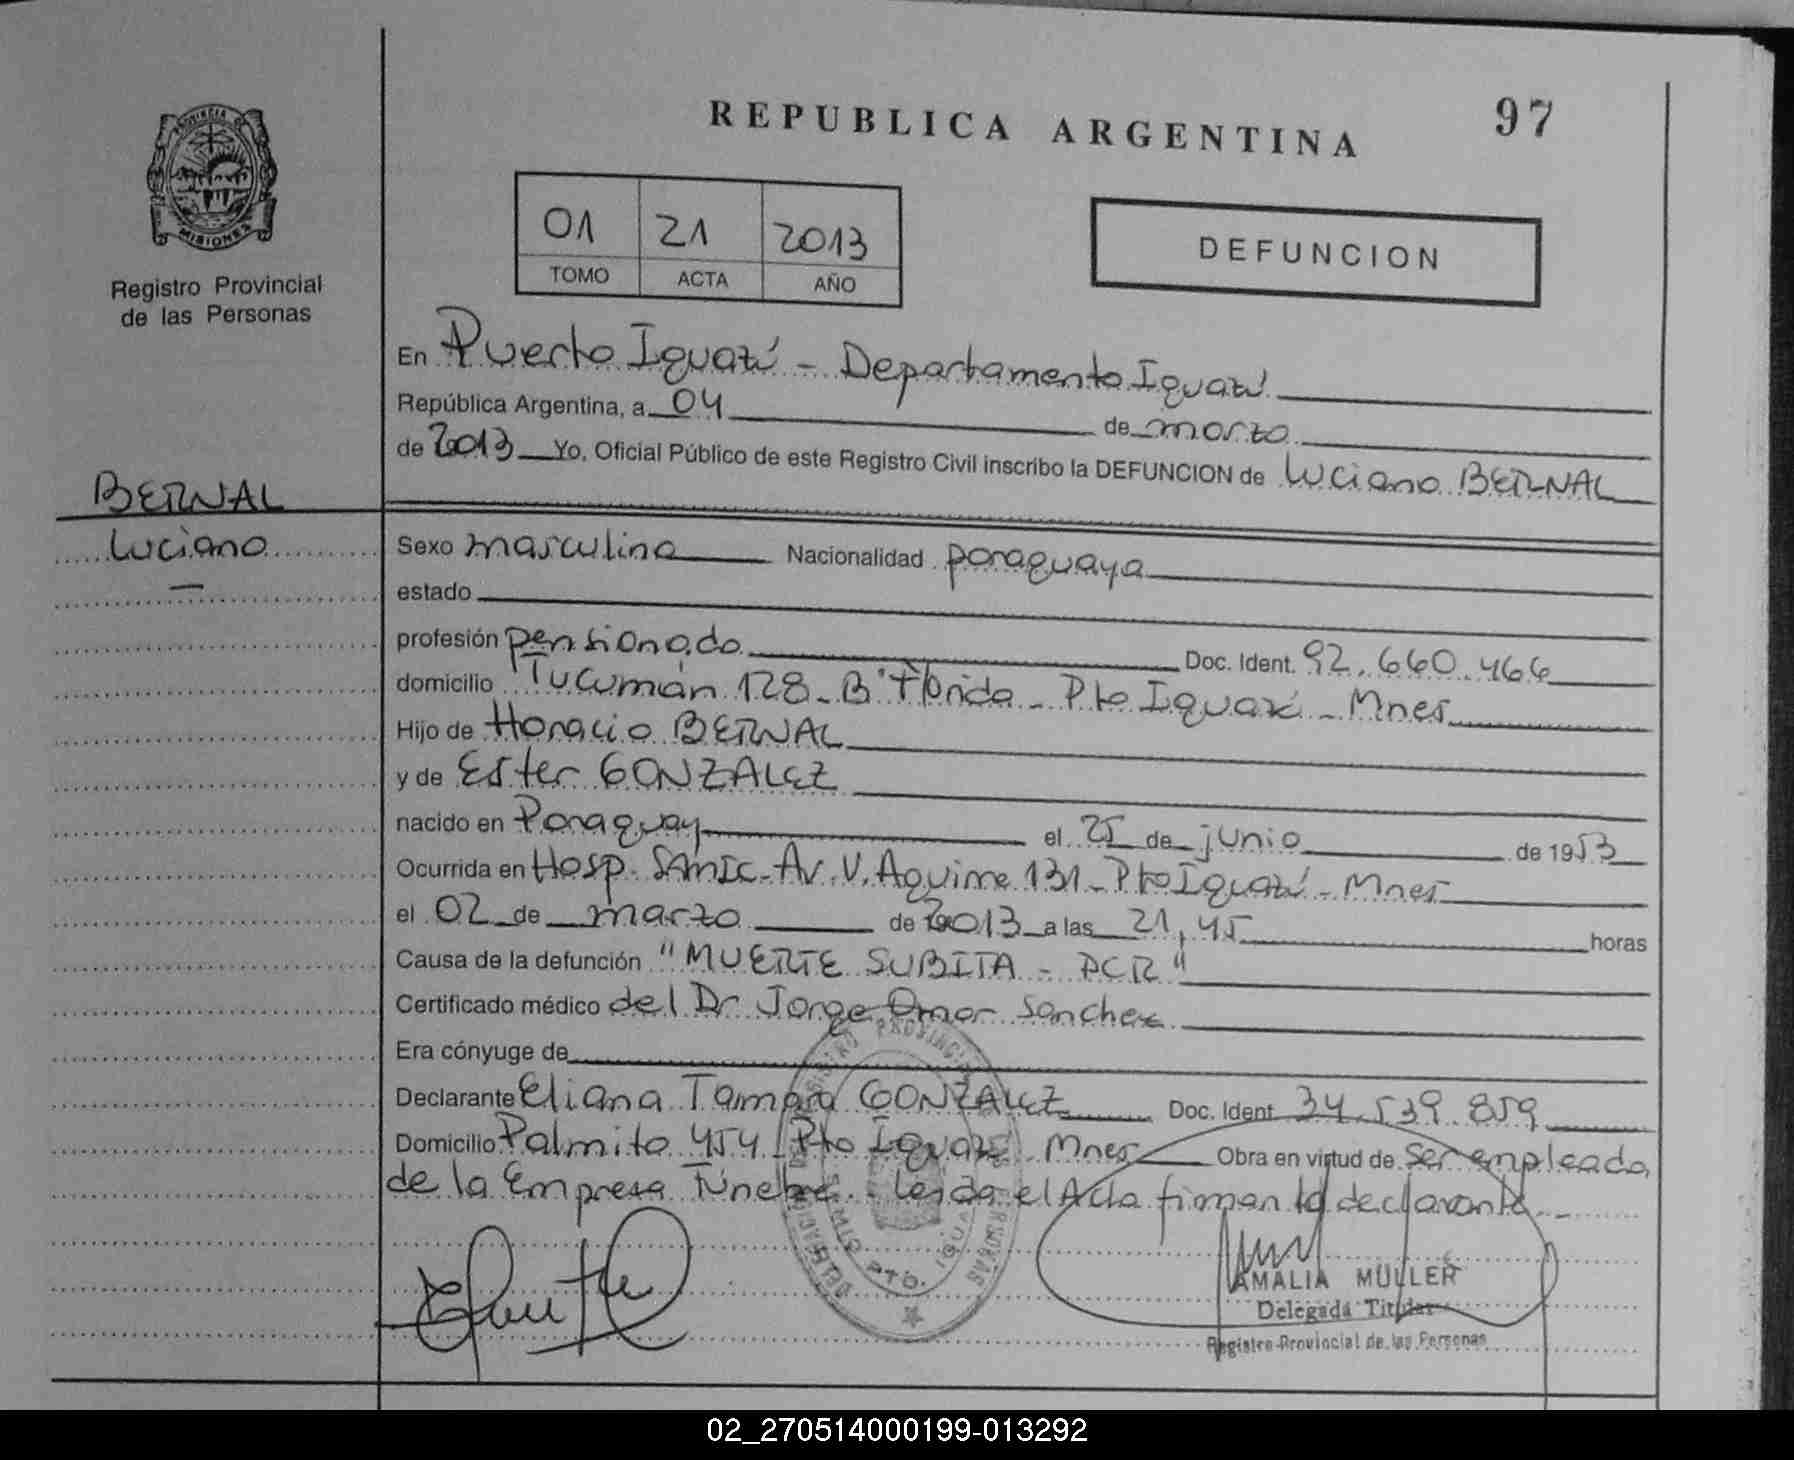 PROVINCIA DE
MISIONES
Registro Provincial
de las Personas
BERNAL
Luciano
REPUBLICA ARGENTINA
97
01 21 2013
TOMO ACTA AÑO
DEFUNCION
En Puerto Iguazú - Departamento Iguazú
República Argentina, a 04 de marzo
de 2013 Yo, Oficial Público de este Registro Civil inscribo la DEFUNCION de Luciano BERNAL
Sexo masculino Nacionalidad paraguaya
estado
profesión pensionado Doc. Ident. 92.660.466
domicilio Tucumán 128 - B° Florida - Pto Iguazú - Mnes
Hijo de Horacio BERNAL
y de Ester GONZALEZ
nacido en Paraguay el 25 de junio de 1953
Ocurrida en Hosp. SAMIC - Av. V. Aguirre 131 - Pto Iguazú - Mnes
el 02 de marzo de 2013 a las 21,45 horas
Causa de la defunción "MUERTE SUBITA - PCR"
Certificado médico del Dr Jorge Omar Sanchez
Era cónyuge de
Declarante Eliana Tamara GONZALEZ Doc. Ident 34.539.859
Domicilio Palmito 454 Pto Iguazú Mnes Obra en virtud de Ser empleada
de la Empresa Fúnebre. Leída el Acta firman la declarante
AMALIA MULLER
Delegada Titular
Registro Provincial de las Personas
02_270514000199-013292